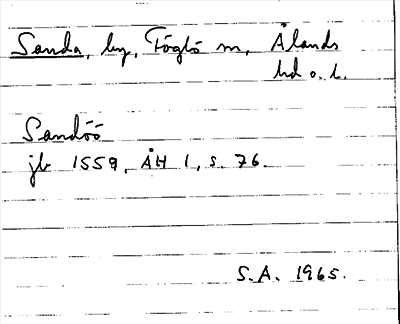 Sanda, by, Föglö m, Ålands
hd o. l.
Sandöö
jb 1559, ÅH 1, s. 76.
S.A. 1965.